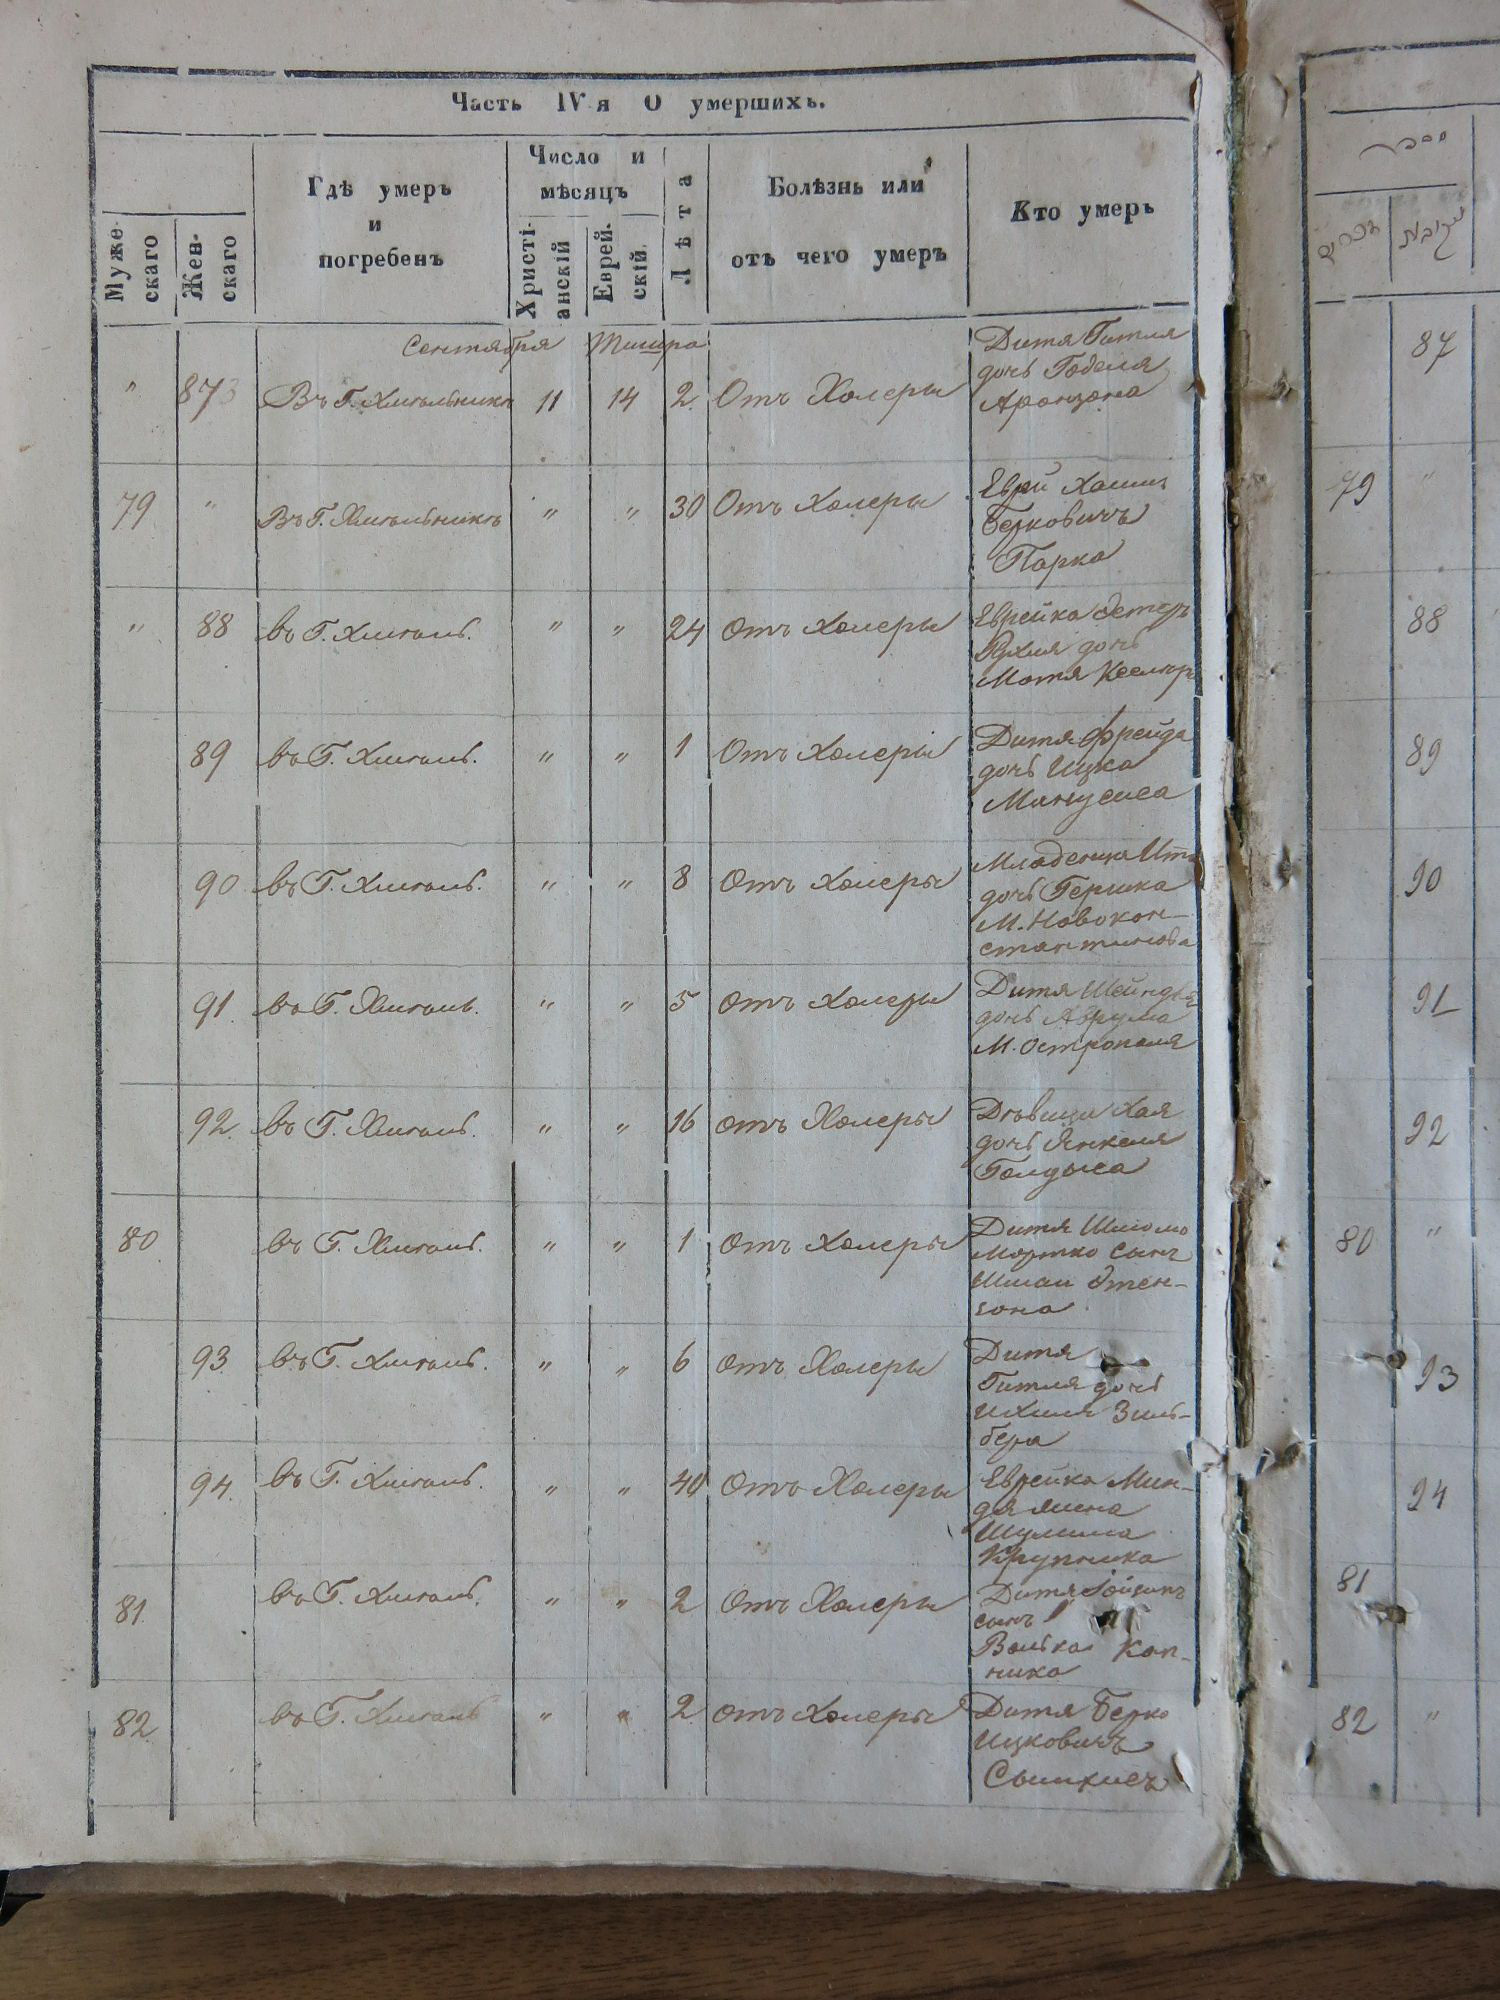 Часть IV я О умершихъ.
Муже-
скаго
Жен-
скаго
Гдѣ умеръ
и
погребенъ
Число и
мѣсяцъ
Христі-
анскій
Еврей-
скій
Лѣта
Болѣзнь или
отъ чего умеръ
Кто умеръ
Сентября Тишра
" 87 Въ Г. Хмѣльникѣ 11 14 2 Отъ Холеры
Дитя Гитля
дочь Годеля
Аронзона
79 " Въ Г. Хмѣльникѣ " " 30 Отъ Холеры
Еврей Хаимъ
Берковичъ
Парка
" 88 въ Г. Хмѣль. " " 24 отъ Холеры
Еврейка Эстеръ
Рухля дочь
Мотя
89 въ Г. Хмѣль. " " 1 Отъ Холеры
Дитя Фрейда
дочь Ицка
Манусиса
90 въ Г. Хмѣль. " " 8 Отъ Холеры
Младенца
дочь Гершка
М. Новокон-
стантинова
91 въ Г. Хмѣль. " " 5 Отъ Холеры
Дитя Шейндля
дочь Аврума
М. Острополя
92 въ Г. Хмѣль. " " 16 отъ Холеры
Дѣвица Хая
дочь Янкеля
80 въ Г. Хмѣль. " " 1 Отъ Холеры
Дитя Шлиомо
Мортко сынъ
93 въ Г. Хмѣль. " " 6 Отъ Холеры
Дитя
Гитля дочь
Ихиля Зиль-
бера
94 въ Г. Хмѣль. " " 40 Отъ Холеры
Еврейка Мин-
дя жена
Шулима
Крупника
81 въ Г. Хмѣль. " " 2 Отъ Холеры
Дитя
сынъ
Волька Коп-
ника
82 въ Г. Хмѣль " " 2 отъ Холеры
Дитя Берко
Ицковичъ
87
79 "
88
89
90
91
92
80 "
93
94
81
82 "